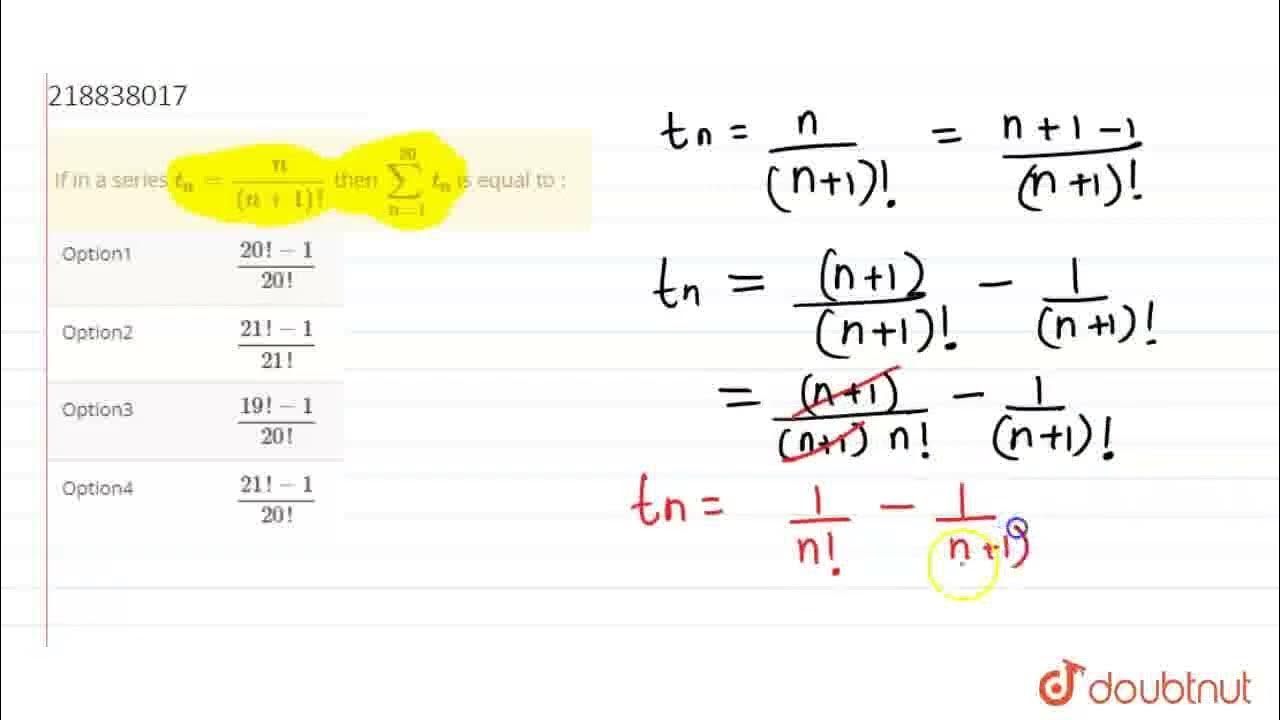 218838017
If in a series t_n = n/(n + 1)! then ∑_{n=1}^{20} t_n is equal to :
Option1 (20! − 1)/20!
Option2 (21! − 1)/21!
Option3 (19! − 1)/20!
Option4 (21! − 1)/20!
tn = n/(n+1)! = (n+1-1)/(n+1)!
tn = (n+1)/(n+1)! - 1/(n+1)!
= (n+1)/(n+1) n! - 1/(n+1)!
tn = 1/n! - 1/n+1)
doubtnut